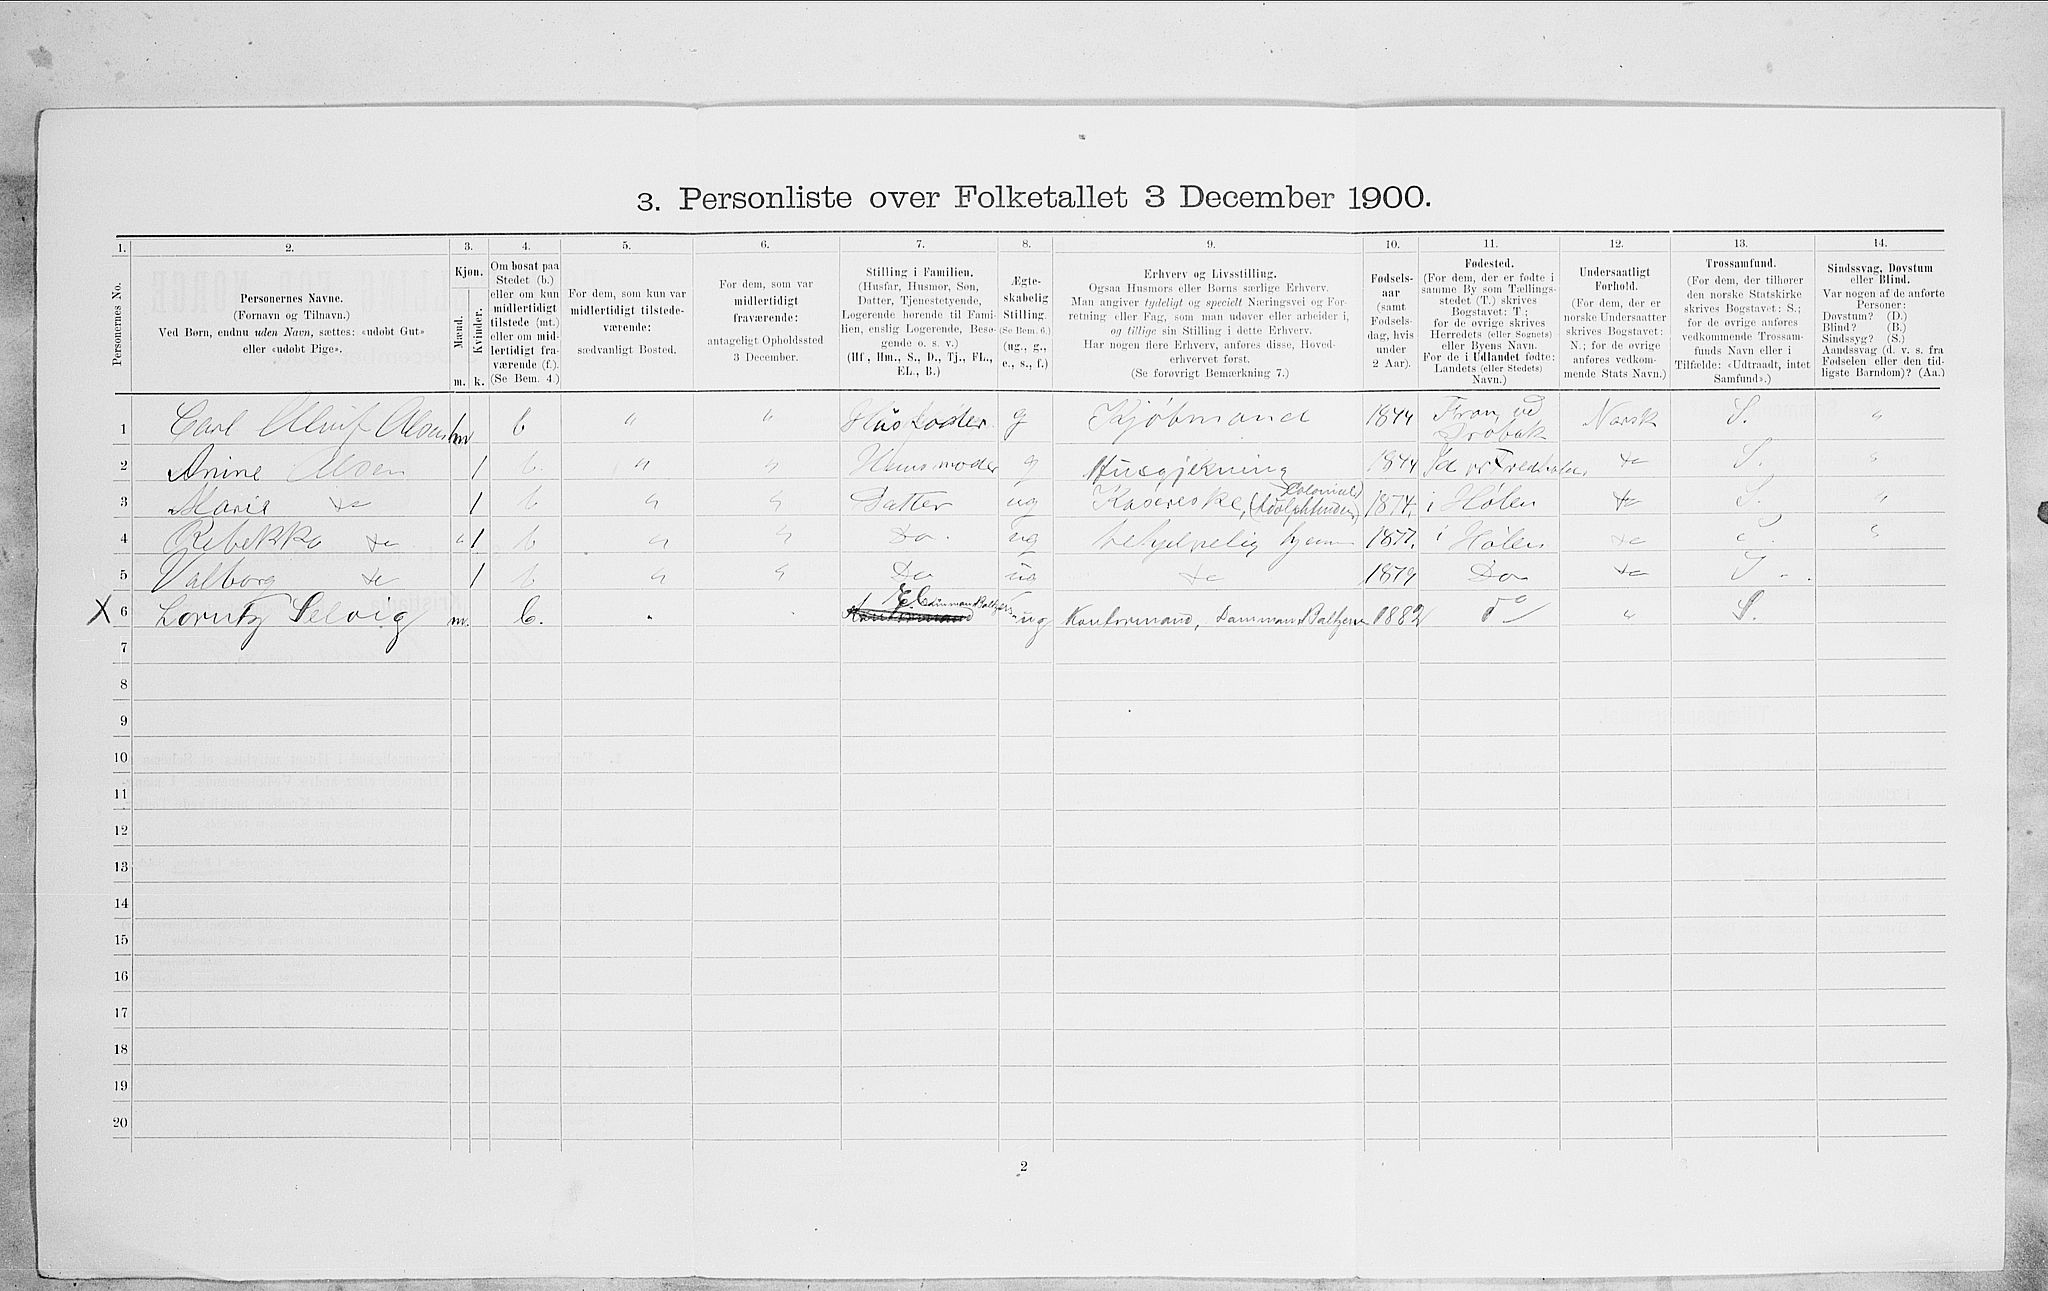 3. Personliste over Folketallet 3 December 1900.
1. 2. 3. 4. 5. 6. 7. 8. 9. 10. 11. 12. 13. 14.
Personernes No.
Personernes Navne.
(Fornavn og Tilnavn).
Ved Børn, endnu uden Navn, sættes: «udøbt Gut»
eller «udøbt Pige».
Kjøn.
Mænd. Kvinder.
m. k.
Om bosat paa
Stedet (b.)
eller om kun
midlertidigt
tilstede (mt.)
eller om mid-
lertidigt fra-
værende (f.).
(Se Bem. 4.)
For dem, som kun var
midlertidigt tilstede-
værende:
sædvanligt Bosted.
For dem, som var
midlertidigt
fraværende:
antageligt Opholdssted
3 December.
Stilling i Familien.
(Husfar, Husmor, Søn,
Datter, Tjenestetyende,
Logerende hørende til Fami-
lien, enslig Logerende, Besø-
gende o. s. v.)
(Hf, Hm., S., D., Tj., FL.,
EL., B.)
Ægte-
skabelig
Stilling.
(Se Bem. 6.)
(ug., g.,
e., s., f.)
Erhverv og Livsstilling.
Ogsaa Husmors eller Børns særlige Erhverv.
Man angiver tydeligt og specielt Næringsvei og For-
retning eller Fag, som man udøver eller arbeider i,
og tillige sin Stilling i dette Erhverv.
Har nogen flere Erhverv, anføres disse, Hoved-
erhvervet først.
(Se forøvrigt Bemærkning 7.)
Fødsels-
aar
(samt
Fødsels-
dag, hvis
under
2 Aar).
Fødested.
(For dem, der er fødte i
samme By som Tællings-
stedet (T.) skrives
Bogstavet: T.;
for de øvrige skrives
Herredets (eller Sognets)
eller Byens Navn.
For de i Udlandet fødte:
Landets (eller Stedets)
Navn.)
Undersaatligt
Forhold.
(For dem, der er
norske Undersaatter
skrives Bogstavet:
N.; for de øvrige
anføres vedkom-
mende Stats Navn.)
Trossamfund.
(For dem, der tilhører
den norske Statskirke
skrives Bogstavet: S.;
for de øvrige anføres
vedkommende Trossam-
funds Navn eller i
Tilfælde: «Udtraadt, intet
Samfund».)
Sindssvag, Døvstum
eller Blind.
Var nogen af de anførte
Personer:
Døvstum? (D.)
Blind? (B.)
Sindssyg? (S.)
Aandssvag (d. v. s. fra
Fødselen eller den tid-
ligste Barndom)? (Aa.)
1 Carl m b " " Husfader g Kjøbmand 1844 Norsk S. "
Drøbak
2 Anine Olsen 1 b. " " Husmoder g 1844 do S. "
Colonial
3 Marie do 1 b " " Datter ug 1874. i Hølen do S. "
4 Rebekka do 1 b " " Do. ug behjelpelig hjem 1877. i Hølen do S. "
5 Valborg do 1 b " " Do ug do 1879 Do do S.
X 6 Lorntz Selvig m. b. ug Kontormand, 1882 do " S.
7
8
9
10
11
12
13
14
15
16
17
18
19
20
2